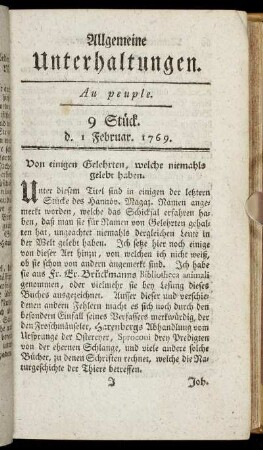 Allgemeine
Unterhaltungen.
Au peuple.
9 Stück.
d. 1 Februar. 1769.
Von einigen Gelehrten, welche niemahls
gelebt haben.
Unter diesem Titel sind in einigen der letztern
Stücke des Hannöv. Magaz. Namen ange-
merkt worden, welche das Schicksal erfahren ha-
ben, daß man sie für Namen von Gelehrten gehal-
ten hat, ungeachtet niemahls dergleichen Leute in
der Welt gelebt haben. Ich setze hier noch einige
von dieser Art hinzu, von welchen ich nicht weiß,
ob sie schon von andern angemerkt sind. Ich habe
sie aus Fr. Er. Brückmanns Bibliotheca animali
genommen, oder vielmehr sie bey Lesung dieses
Buches ausgezeichnet. Ausser dieser und verschie-
denen andern Fehlern macht es sich noch durch den
besondern Einfall seines Verfassers merkwürdig, der
den Froschmäuseler, Harenbergs Abhandlung vom
Ursprunge der Ostereyer, Sproconi drey Predigten
von der ehernen Schlange, und viele andere solche
Bücher, zu denen Schriften rechnet, welche die Na-
turgeschichte der Thiere betreffen.
J Joh.